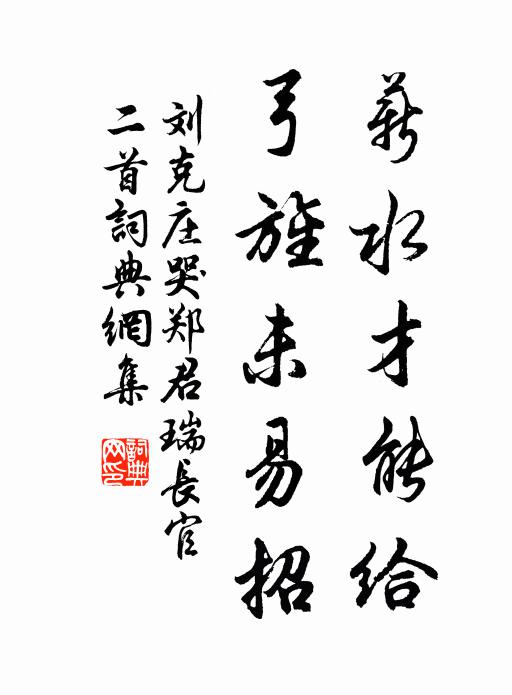 薪水才能给
弓旌未易招
刘克庄哭郑君瑞长官
二首詞典網集
詞典
网印